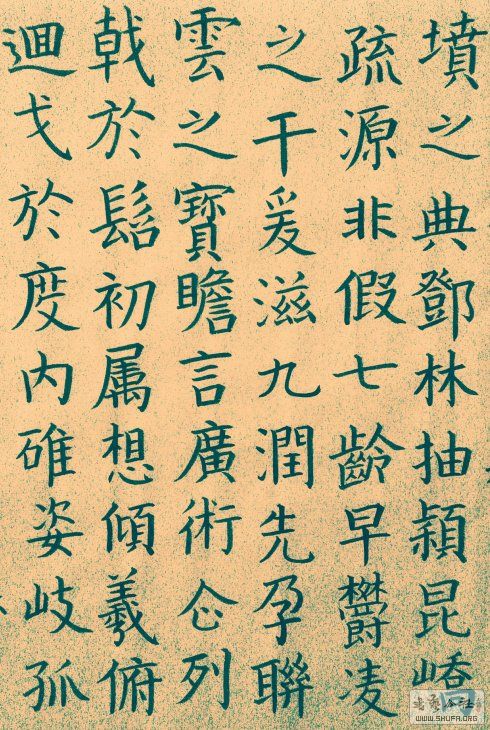 墳之典鄧林抽穎昆嶠
疏源非假七齡早欝凌
之干爰滋九潤先孕聯
雲之寶瞻言廣術心列
戟於髫初属想傾羲俯
迴戈於度内碓姿岐孤
书艺公社
WWW.SHUFA.ORG